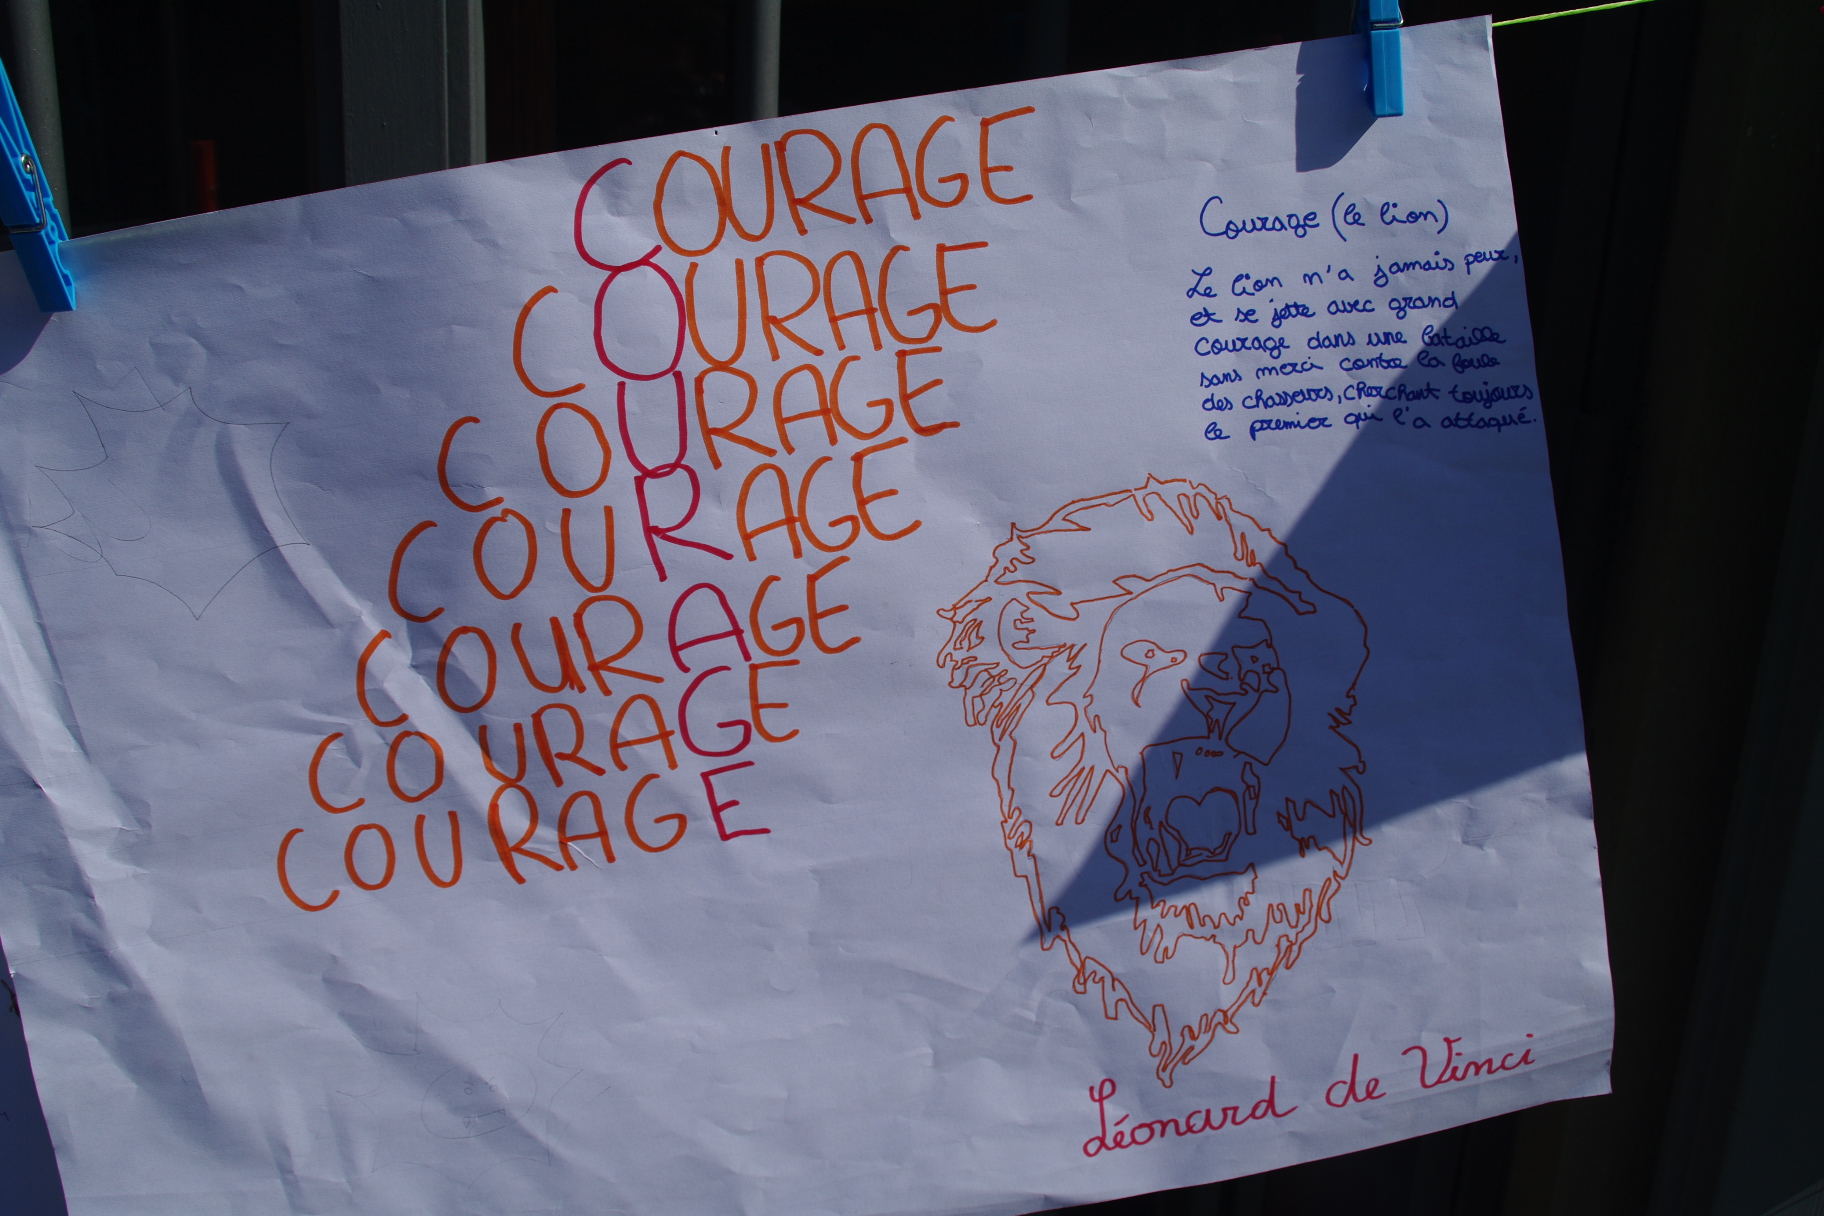 COURAGE
COURAGE
COURAGE
COURAGE
COURAGE
COURAGE
COURAGE
Courage (le lion)
Le lion n'a jamais peur,
et se jette avec grand
courage dans une bataille
sans merci contre la foule
des chasseurs, cherchant toujours
le premier qui l'a attaqué.
Léonard de Vinci